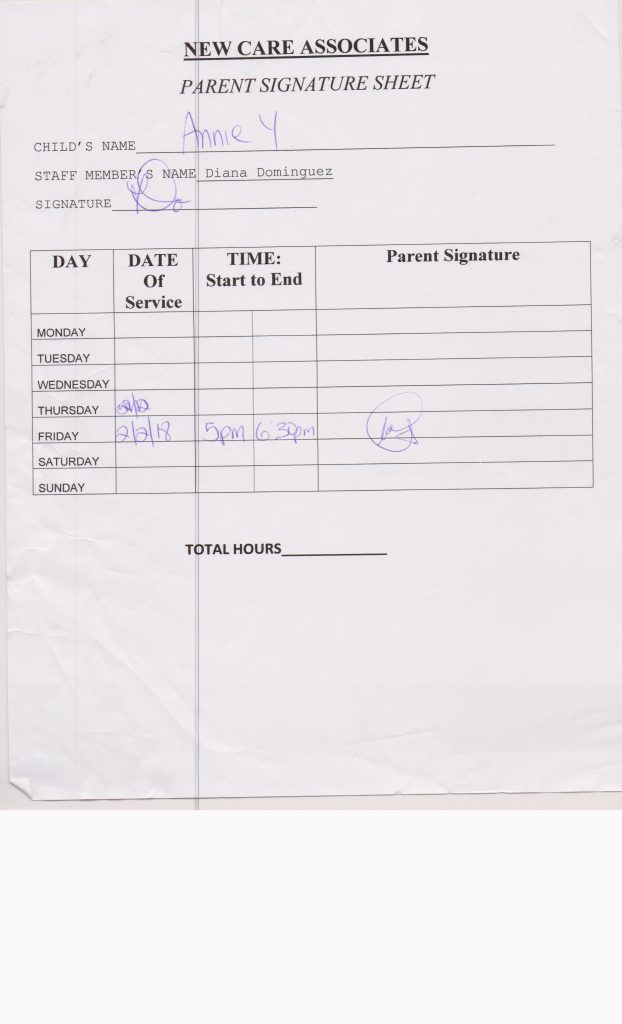 NEW CARE ASSOCIATES
PARENT SIGNATURE SHEET
CHILD'S NAME Annie Y
STAFF MEMBER'S NAME Diana Dominguez
SIGNATURE
DAY DATE Of Service TIME: Start to End Parent Signature
MONDAY
TUESDAY
WEDNESDAY
THURSDAY
FRIDAY 2/2/18 5pm 6:30pm
SATURDAY
SUNDAY
TOTAL HOURS